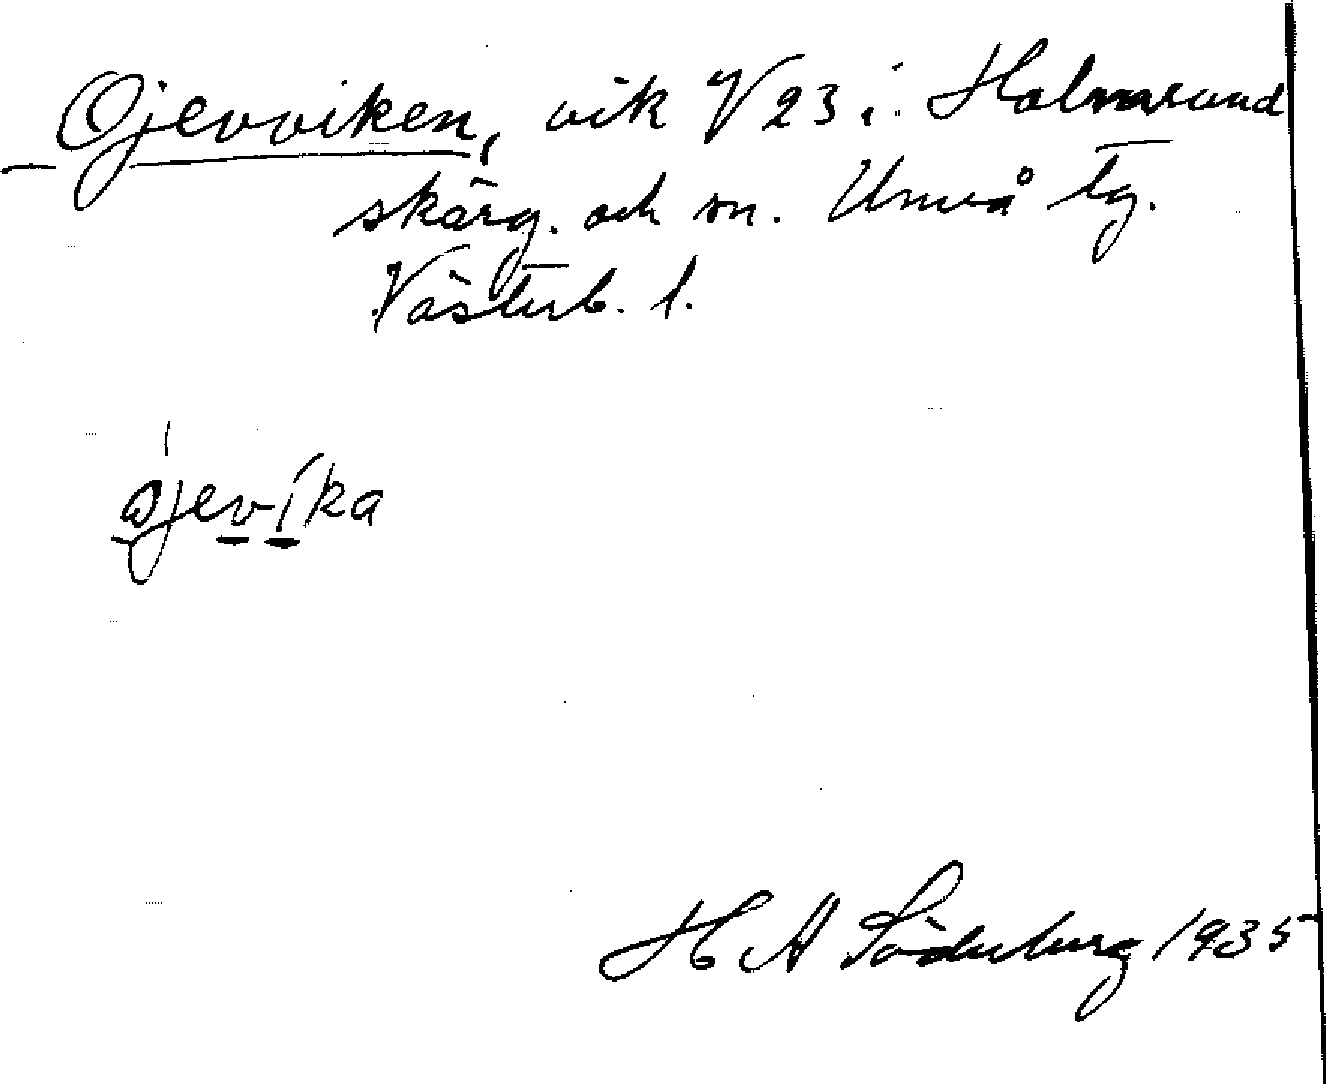 Ojevviken, vik V 23 i Holmsund
skärg. och sn. Umeå tg.
Västerb. l.
ojevíka
H A Söderberg 1935